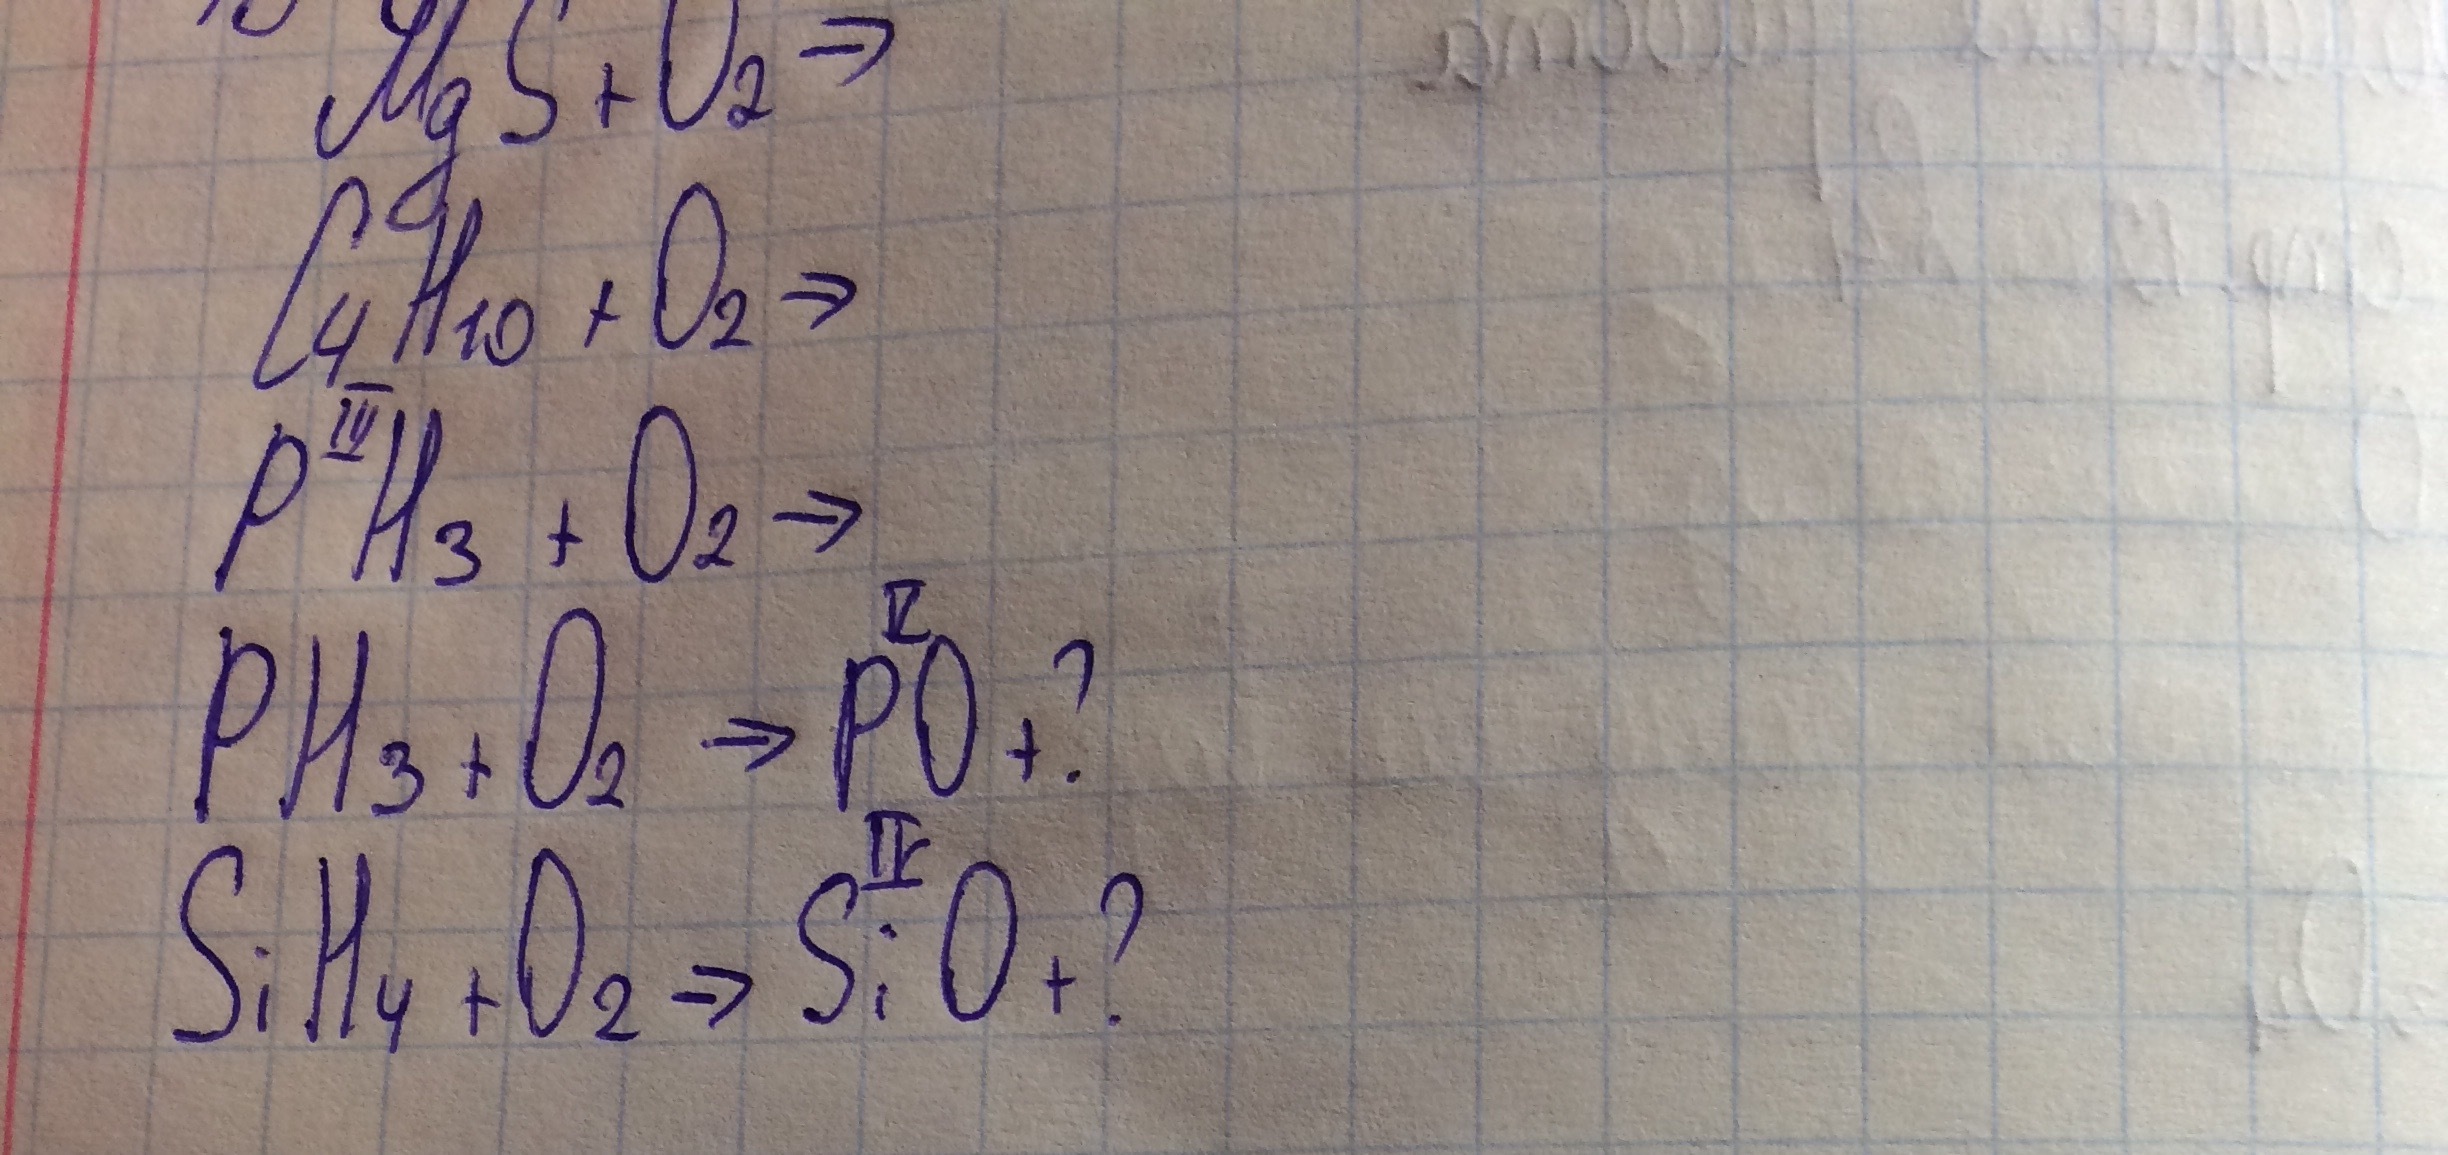 MgS + O₂ →
C₄H₁₀ + O₂ →
PᴵᴵᴵH₃ + O₂ →
PH₃ + O₂ → PⱽO + ?
SiH₄ + O₂ → SiᴵⱽO + ?